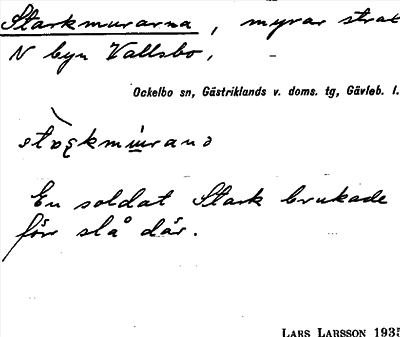 Starkmurarna, myrar strax
N byn Vallsbo,
Ockelbo sn, Gästriklands v. doms. tg, Gävleb. l.
En soldat Stark brukade
förr slå där.
LARS LARSSON 1935